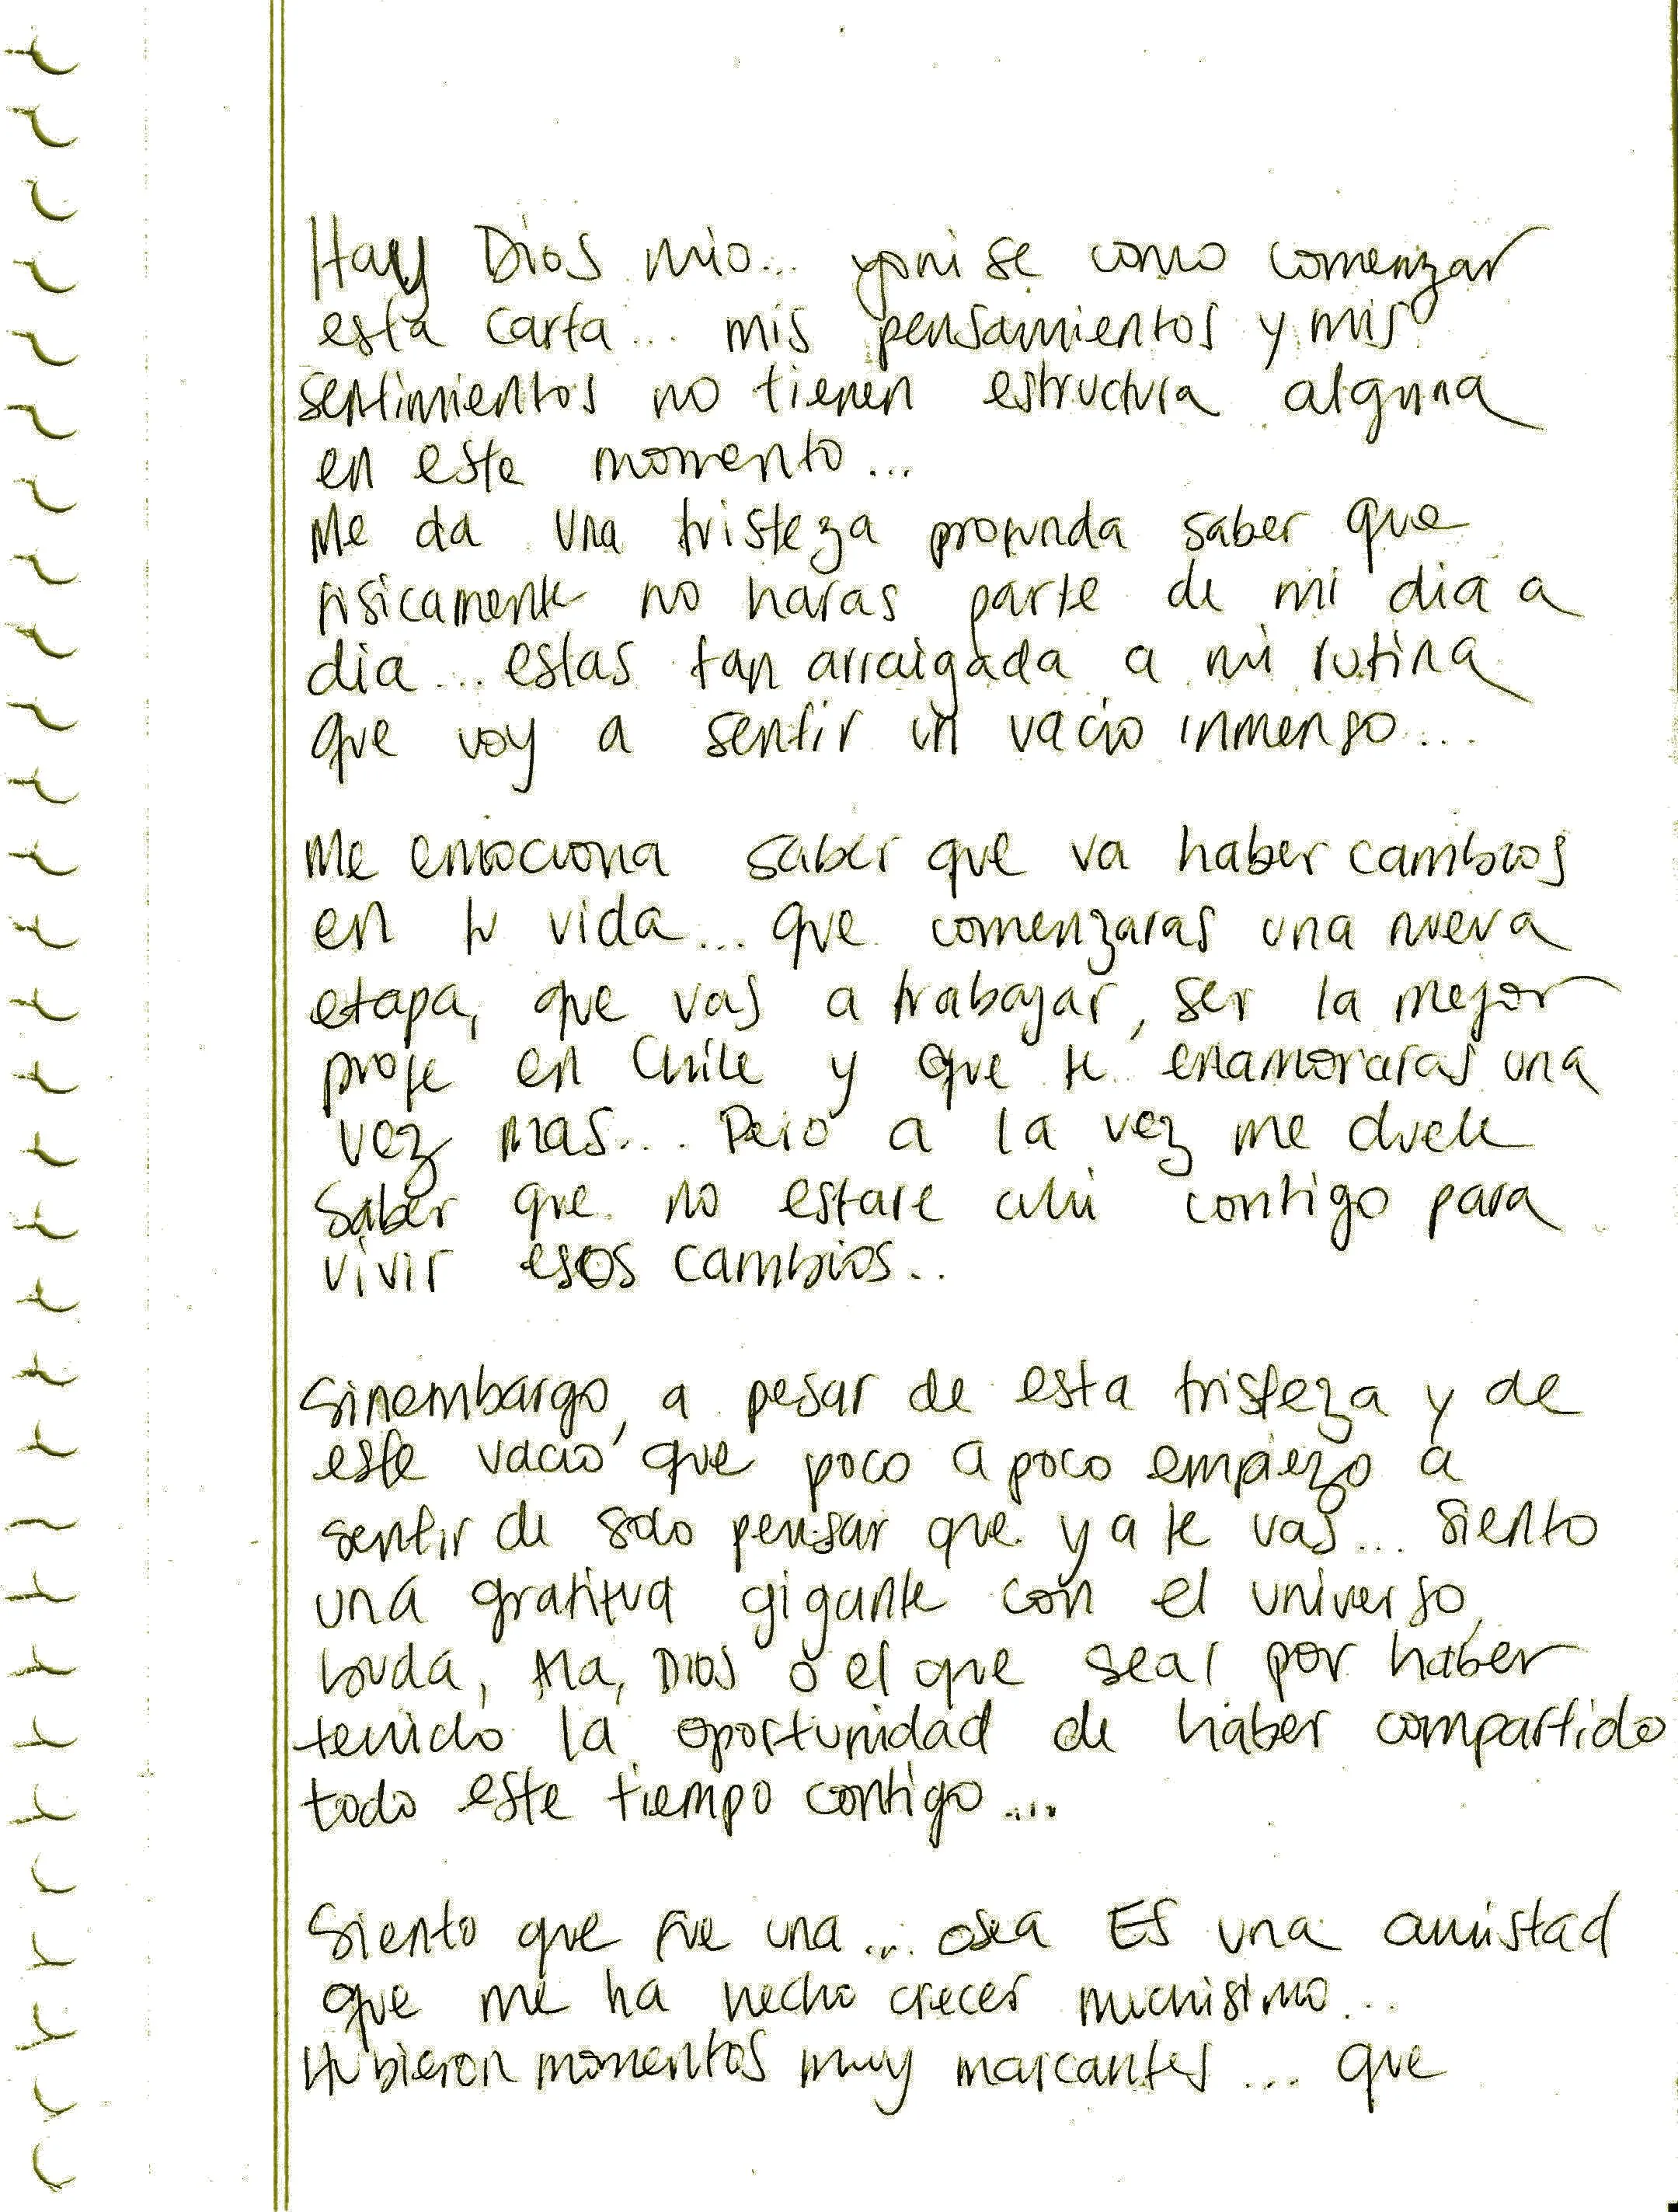 Hay Dios mio... yo ni se como comenzar
esta carta... mis pensamientos y mis
sentimientos no tienen estructura alguna
en este momento...
Me da una tristeza profunda saber que
fisicamente no haras parte de mi dia a
dia... estas tan arraigada a mi rutina
que voy a sentir un vacio inmenso...
Me emociona saber que va haber cambios
en tu vida... que comenzaras una nueva
etapa, que vas a trabajar, ser la mejor
profe en Chile y que te enamoraras una
vez mas... Pero a la vez me duele
saber que no estare ahi contigo para
vivir esos cambios..
Sinembargo, a pesar de esta tristeza y de
este vacio que poco a poco empiezo a
sentir de solo pensar que ya te vas... siento
una gratitud gigante con el universo,
buda, Ala, Dios o el que sea! por haber
tenido la oportunidad de haber compartido
todo este tiempo contigo....
Siento que fue una... osea ES una amistad
que me ha hecho crecer muchisimo...
Hubieron momentos muy marcantes... que